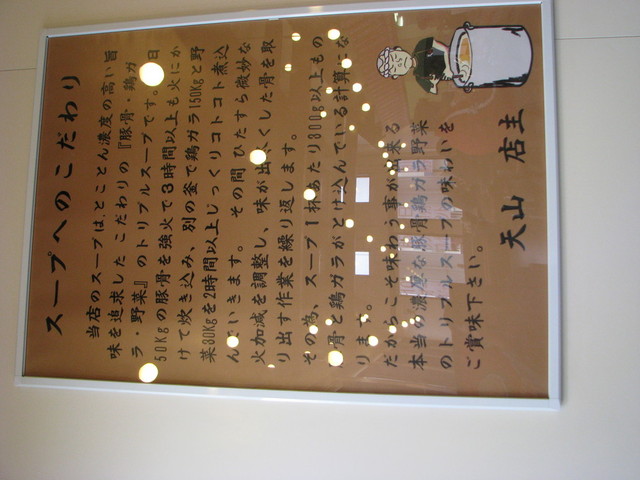 スープへのこだわり
当店のスープは、とことん濃度の高い旨
味を追求したこだわりの『豚骨・鶏ガ
ラ・野菜』のトリプルスープです。 日
50Kgの豚骨を強火で3時間以上も火にか
けて炊き込み、別の釜で鶏ガラ150Kgと野
菜30Kgを2時間以上じっくりコトコト煮込
んでいきます。その間、ひたすら微妙な
火加減を調整し、味が出尽くした骨を取
り出す作業を繰り返します。
その為、スープ1杯あたり300g以上もの
豚骨と鶏ガラがとけ込んでいる計算にな
ります。
だからこそ味わう事が出来る
本当の濃厚な豚骨鶏ガラ野菜
のトリプルスープの味わいを
ご賞味下さい。
天山 店主